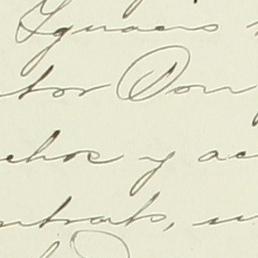 Ygnacio
tor Don
chos y ac
ntrato,